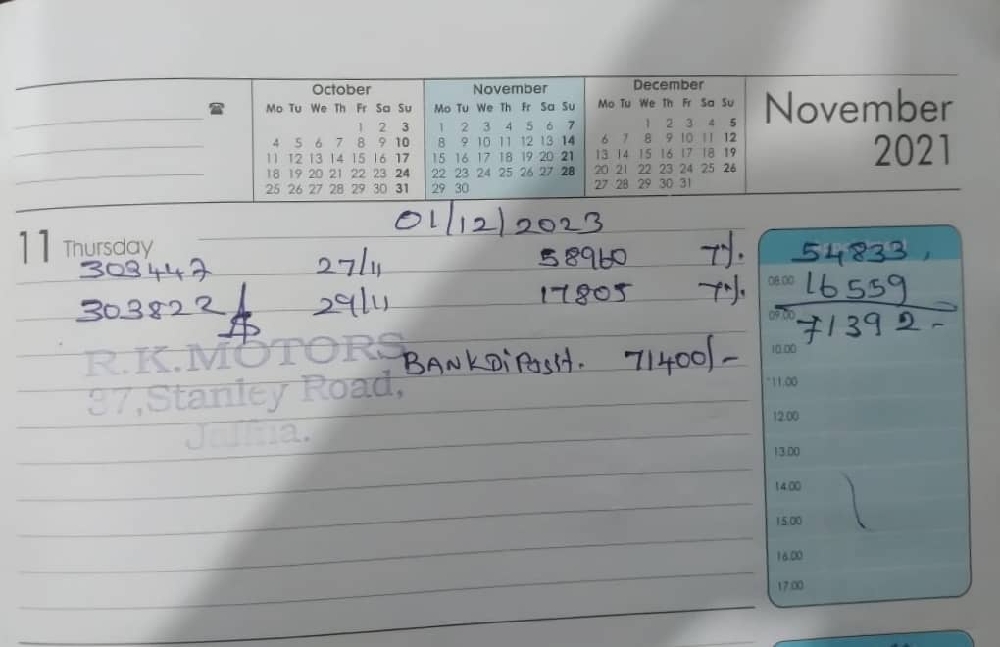 October
Mo Tu We Th Fr Sa Su
1 2 3
4 5 6 7 8 9 10
11 12 13 14 15 16 17
18 19 20 21 22 23 24
25 26 27 28 29 30 31
November
Mo Tu We Th Fr Sa Su
1 2 3 4 5 6 7
8 9 10 11 12 13 14
15 16 17 18 19 20 21
22 23 24 25 26 27 28
29 30
December
Mo Tu We Th Fr Sa Su
1 2 3 4 5
6 7 8 9 10 11 12
13 14 15 16 17 18 19
20 21 22 23 24 25 26
27 28 29 30 31
November
2021
01/12/2023
11 Thursday
303447 27/11 58960 7%. 54833,
303822 29/11 17805 7%. 08.00 16559
09.00 71392-
R.K.MOTORS BANK 71400/- 10.00
37,Stanley Road, 11.00
Jaffna. 12.00
13.00
14.00
15.00
16.00
17.00